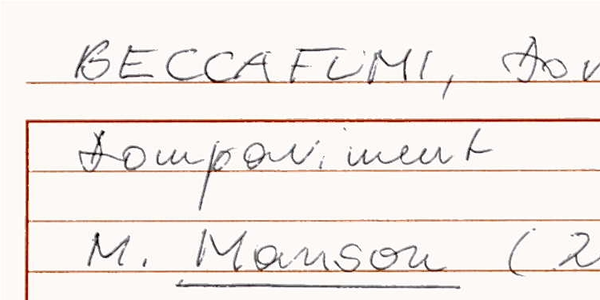 BECCAFUMI,
Dompaviment
M. Manson (2